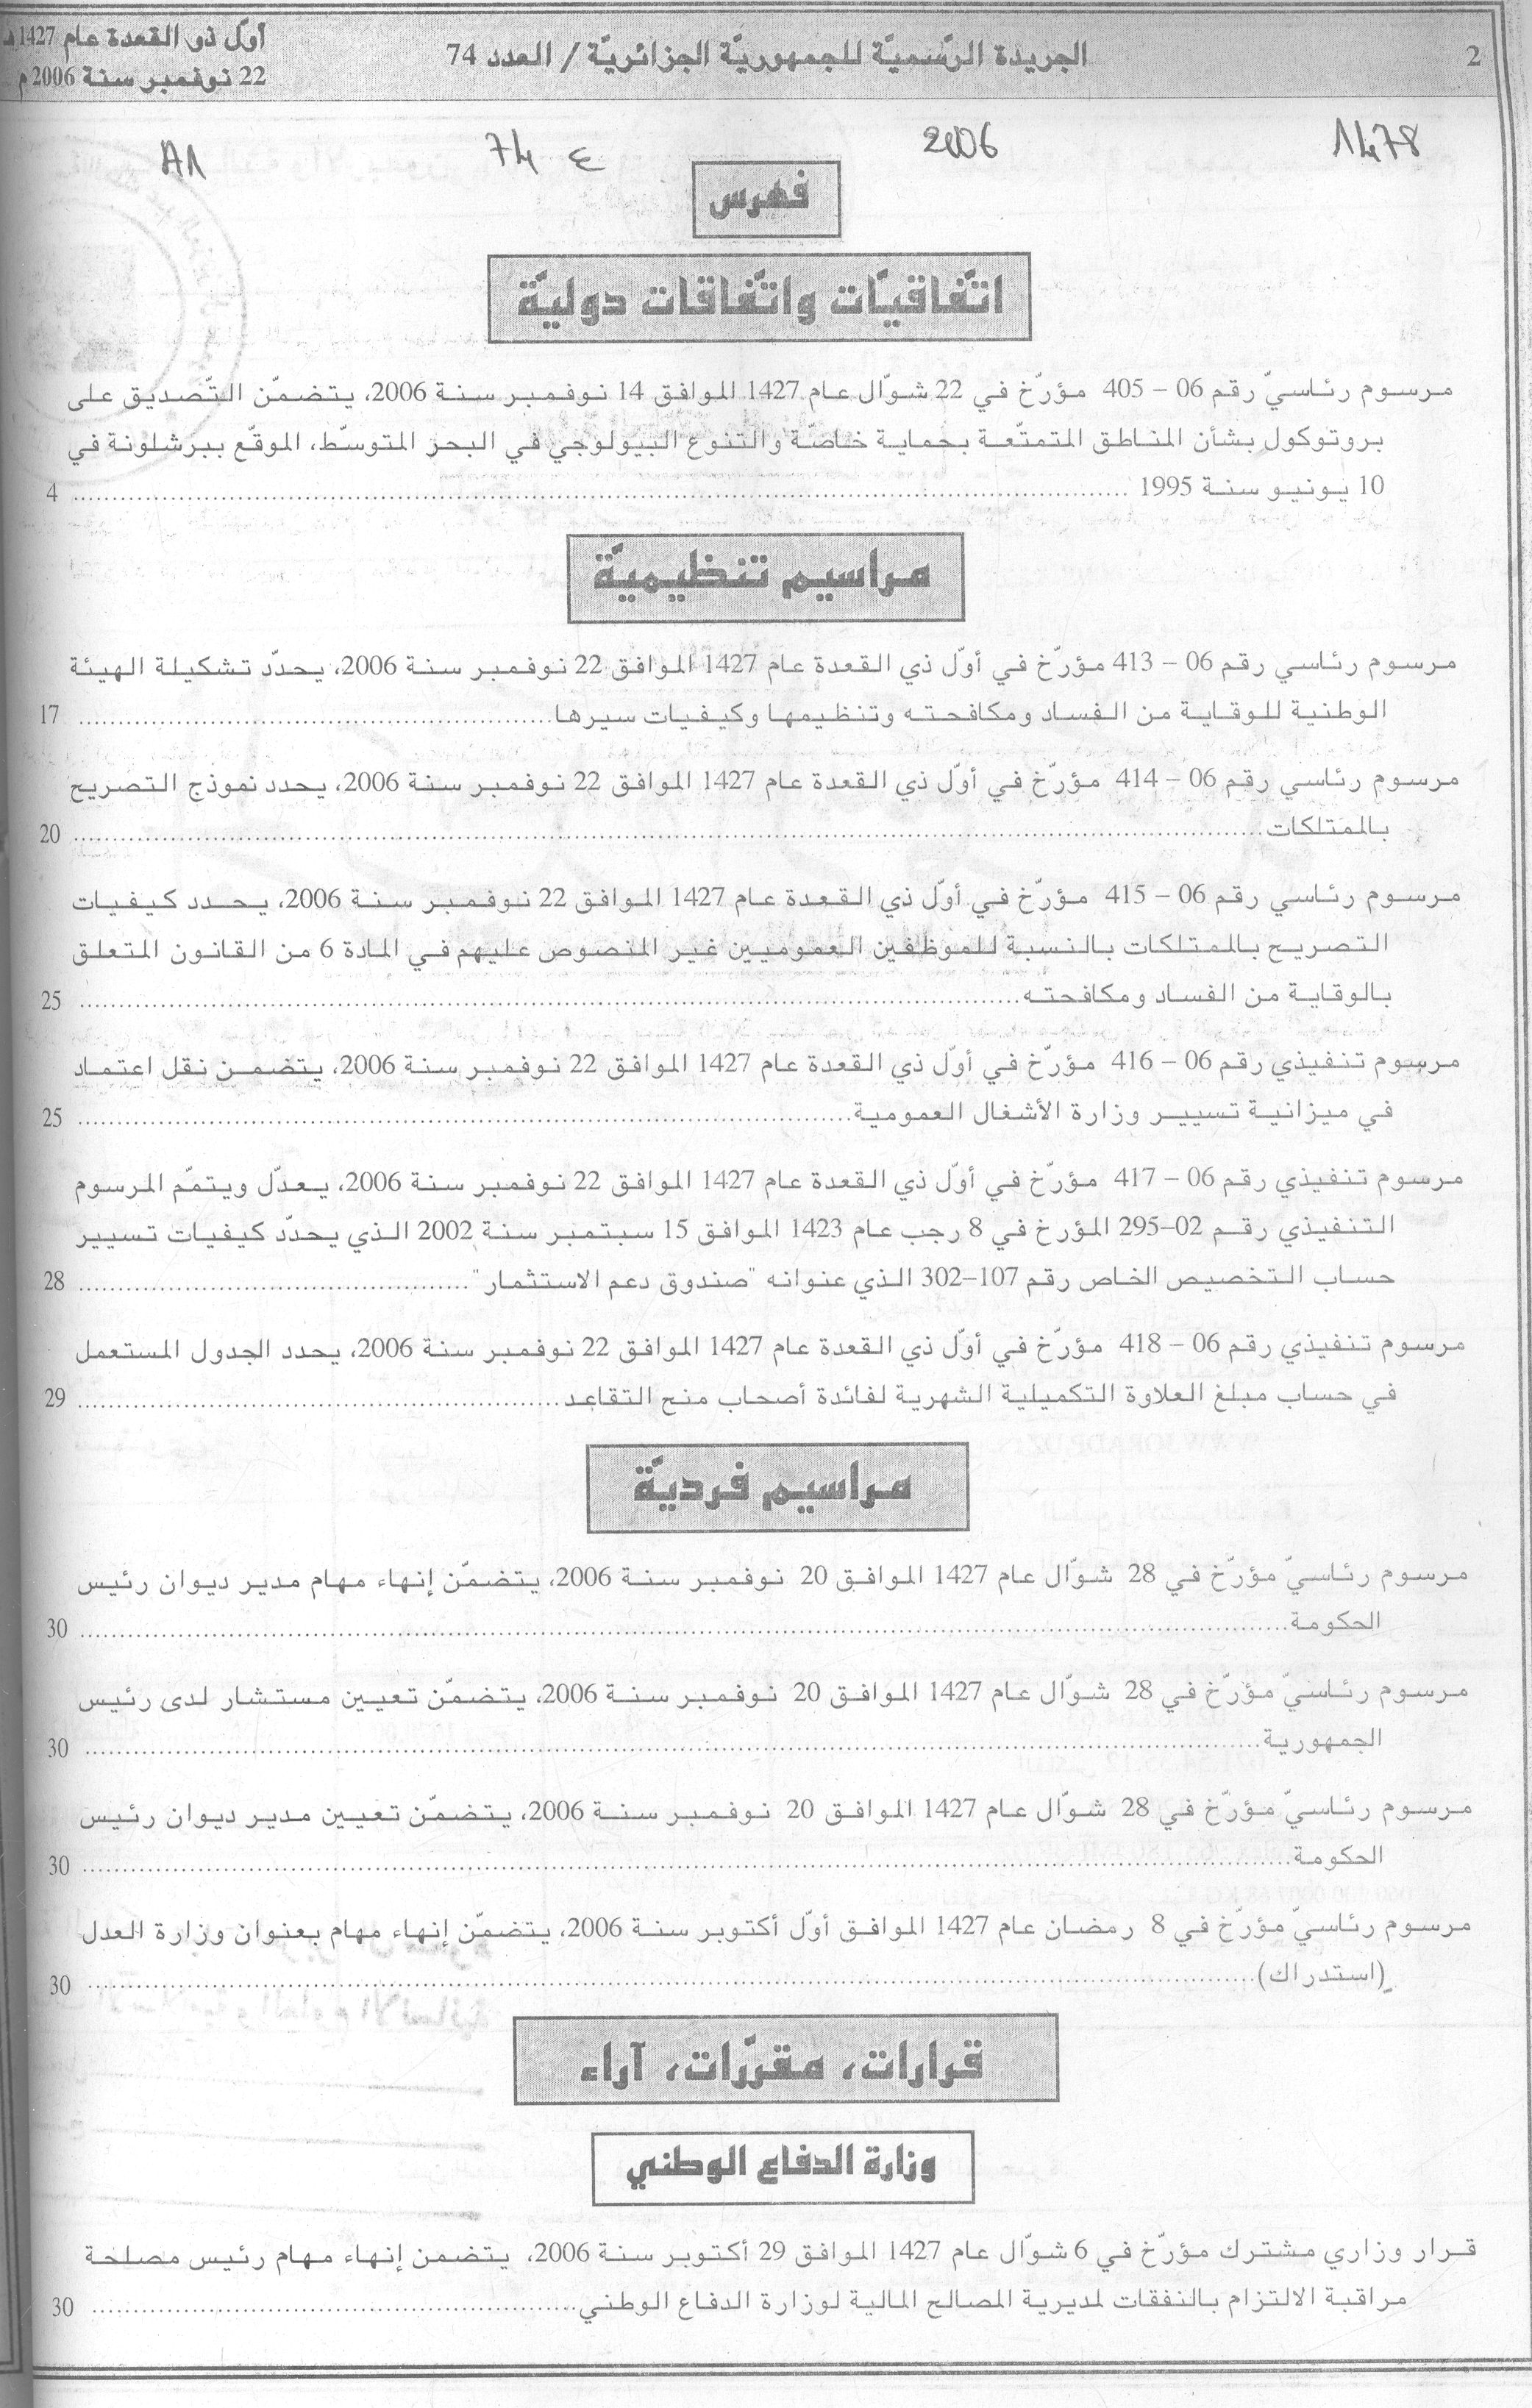 2
الجريدة الرّسميّة للجمهوريّة الجزائريّة / العدد 74
أوّل ذو القعدة عام 1427 هـ
22 نوفمبر سنة 2006 م
1478
2006
ع 74
A1
فهرس
اتّفاقيّات واتّفاقات دوليّة
مرسوم رئاسيّ رقم 06 – 405 مؤرّخ في 22 شوّال عام 1427 الموافق 14 نوفمبر سنة 2006، يتضمّن التّصديق على
بروتوكول بشأن المناطق المتمتّعة بحماية خاصّة والتنوع البيولوجي في البحر المتوسّط، الموقّع ببرشلونة في
10 يونيو سنة 1995 ........ 4
مراسيم تنظيميّة
مرسوم رئاسي رقم 06 – 413 مؤرّخ في أوّل ذي القعدة عام 1427 الموافق 22 نوفمبر سنة 2006، يحدّد تشكيلة الهيئة
الوطنية للوقاية من الفساد ومكافحته وتنظيمها وكيفيات سيرها ........ 17
مرسوم رئاسي رقم 06 – 414 مؤرّخ في أوّل ذي القعدة عام 1427 الموافق 22 نوفمبر سنة 2006، يحدد نموذج التصريح
بالممتلكات ........ 20
مرسوم رئاسي رقم 06 – 415 مؤرّخ في أوّل ذي القعدة عام 1427 الموافق 22 نوفمبر سنة 2006، يحدد كيفيات
التصريح بالممتلكات بالنسبة للموظفين العموميين غير المنصوص عليهم في المادة 6 من القانون المتعلق
بالوقاية من الفساد ومكافحته ........ 25
مرسوم تنفيذي رقم 06 – 416 مؤرّخ في أوّل ذي القعدة عام 1427 الموافق 22 نوفمبر سنة 2006، يتضمن نقل اعتماد
في ميزانية تسيير وزارة الأشغال العمومية ........ 25
مرسوم تنفيذي رقم 06 – 417 مؤرّخ في أوّل ذي القعدة عام 1427 الموافق 22 نوفمبر سنة 2006، يعدّل ويتمّم المرسوم
التنفيذي رقم 02–295 المؤرخ في 8 رجب عام 1423 الموافق 15 سبتمبر سنة 2002 الذي يحدّد كيفيات تسيير
حساب التخصيص الخاص رقم 107–302 الذي عنوانه "صندوق دعم الاستثمار" ........ 28
مرسوم تنفيذي رقم 06 – 418 مؤرّخ في أوّل ذي القعدة عام 1427 الموافق 22 نوفمبر سنة 2006، يحدد الجدول المستعمل
في حساب مبلغ العلاوة التكميلية الشهرية لفائدة أصحاب منح التقاعد ........ 29
مراسيم فرديّة
مرسوم رئاسيّ مؤرّخ في 28 شوّال عام 1427 الموافق 20 نوفمبر سنة 2006، يتضمّن إنهاء مهام مدير ديوان رئيس
الحكومة ........ 30
مرسوم رئاسيّ مؤرّخ في 28 شوّال عام 1427 الموافق 20 نوفمبر سنة 2006، يتضمّن تعيين مستشار لدى رئيس
الجمهورية ........ 30
مرسوم رئاسيّ مؤرّخ في 28 شوّال عام 1427 الموافق 20 نوفمبر سنة 2006، يتضمّن تعيين مدير ديوان رئيس
الحكومة ........ 30
مرسوم رئاسيّ مؤرّخ في 8 رمضان عام 1427 الموافق أوّل أكتوبر سنة 2006، يتضمّن إنهاء مهام بعنوان وزارة العدل
(استدراك) ........ 30
قرارات، مقرّرات، آراء
وزارة الدفاع الوطني
قرار وزاري مشترك مؤرّخ في 6 شوّال عام 1427 الموافق 29 أكتوبر سنة 2006، يتضمن إنهاء مهام رئيس مصلحة
مراقبة الالتزام بالنفقات لمديرية المصالح المالية لوزارة الدفاع الوطني ........ 30